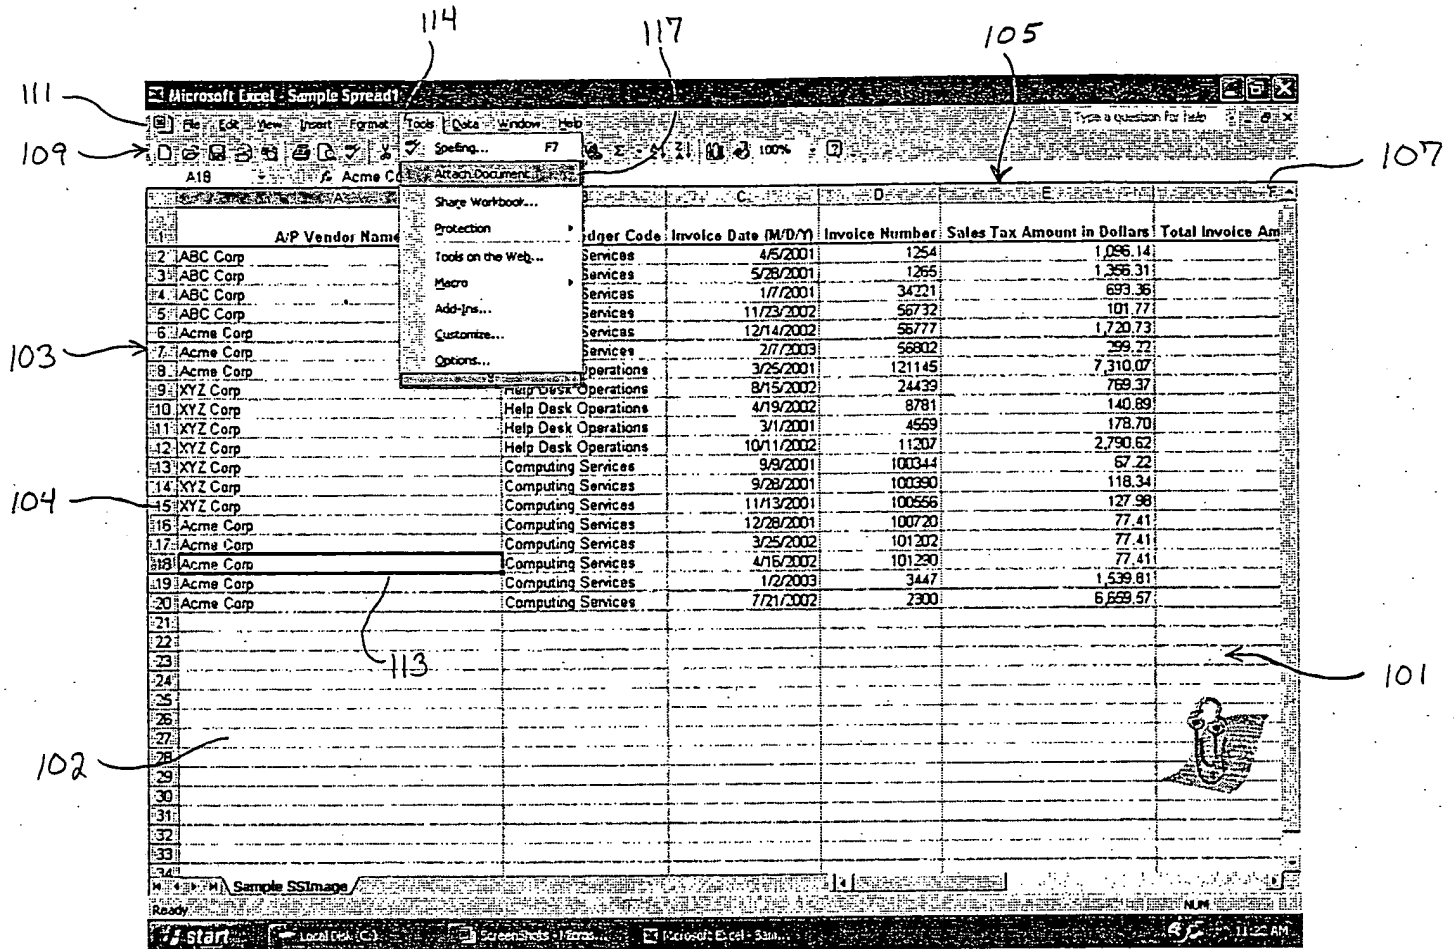 114 117 105
Microsoft Excel - Sample Spread1
111
File Edit View Insert Format Tools Data Window Help Type a question for help
109 Spelling... F7 100% 107
A18 A18 fx Acme Co Attach Document...
A C D E F
Share Workbook...
Protection
Tools on the Web...
Macro
Add-Ins...
Customize...
Options...
1 A/P Vendor Name edger Code Invoice Date (M/D/Y) Invoice Number Sales Tax Amount in Dollars Total Invoice Am
2 ABC Corp Services 4/5/2001 1254 1,096.14
3 ABC Corp Services 5/28/2001 1265 1,356.31
4 ABC Corp Services 1/7/2001 34221 693.36
5 ABC Corp Services 11/23/2002 56732 101.77
6 Acme Corp Services 12/14/2002 56777 1,720.73
103 7 Acme Corp Services 2/7/2003 56802 299.72
8 Acme Corp perations 3/25/2001 121145 7,310.07
9 XYZ Corp Help Desk Operations 8/15/2002 24439 769.37
10 XYZ Corp Help Desk Operations 4/19/2002 8781 140.89
11 XYZ Corp Help Desk Operations 3/1/2001 4569 178.70
12 XYZ Corp Help Desk Operations 10/11/2002 11207 2,790.62
13 XYZ Corp Computing Services 9/9/2001 100344 67.22
14 XYZ Corp Computing Services 9/28/2001 100390 118.34
104 15 XYZ Corp Computing Services 11/13/2001 100556 127.98
16 Acme Corp Computing Services 12/28/2001 100720 77.41
17 Acme Corp Computing Services 3/25/2002 101202 77.41
18 Acme Corp Computing Services 4/16/2002 101290 77.41
19 Acme Corp Computing Services 1/2/2003 3447 1,539.81
20 Acme Corp Computing Services 7/21/2002 2300 6,659.57
21
22
23 113
24 101
25
26
27
28 102
29
30
31
32
33
34
Sample SSImage
Ready NUM
start Local Disk (C:) ScreenShots - Microsoft Excel - Sam... 11:22 AM